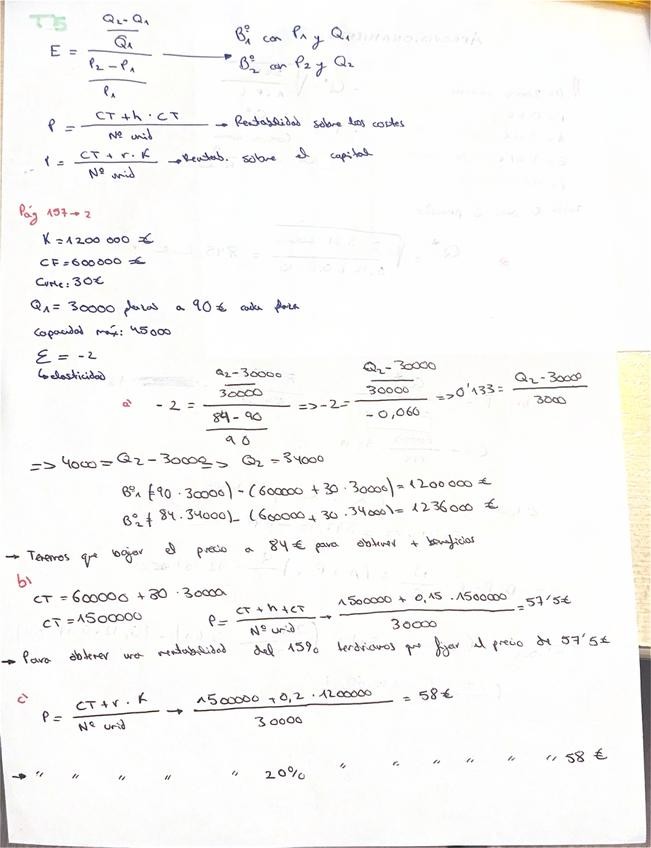 T5
E = (Q2-Q1 / Q1) / (P2-P1 / P1) → Bº1 con P1 y Q1
Bº2 con P2 y Q2
P = (CT + h · CT) / Nº unid → Rentabilidad sobre los costes
P = (CT + r · K) / Nº unid → Rentab. sobre el capital
Pág 197 → 2
K = 1200 000 €
CF = 600000 €
CVMe: 30€
Q1 = 30000 plazas a 90 € cada plaza
Capacidad máx: 45000
E = -2
↳ elasticidad
a) -2 = (Q2-30000 / 30000) / (84-90 / 90) => -2 = (Q2-30000 / 30000) / -0,060 => 0'133 = (Q2-30000) / 3000
=> 4000 = Q2 - 30000 => Q2 = 34000
Bº1 = (90 · 30000) - (600000 + 30 · 30000) = 1200 000 €
Bº2 = (84 · 34000) - (600000 + 30 · 34000) = 1236000 €
→ Tenemos que bajar el precio a 84 € para obtener + beneficios
b)
CT = 600000 + 30 · 30000
CT = 1500000
P = (CT + h + CT) / Nº unid → (1500000 + 0,15 · 1500000) / 30000 = 57'5€
→ Para obtener una rentabilidad del 15% tendríamos que fijar el precio de 57'5€
c)
P = (CT + r · K) / Nº unid → (1500000 + 0,2 · 1200000) / 30000 = 58 €
→ " " " " " 20% " " " " " " " 58 €